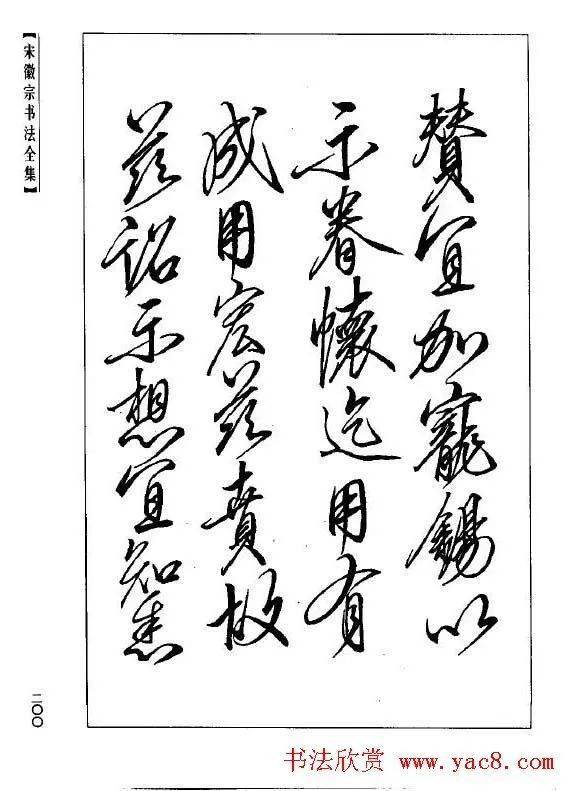 賛宜加寵錫以
示眷懷迄用有
成用宏茲賁故
茲詔示想宜知悉
【宋徽宗书法全集】
二〇〇
书法欣赏 www.yac8.com